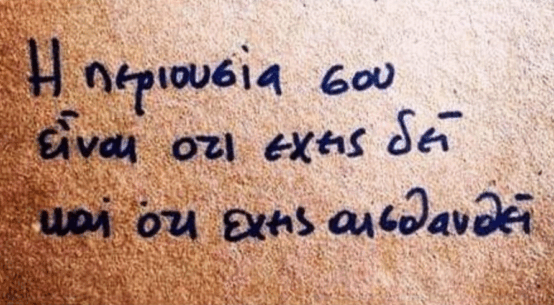 Η περιουσία σου
είναι οτι εχεις δεί
και ότι εχεις αισθανθεί